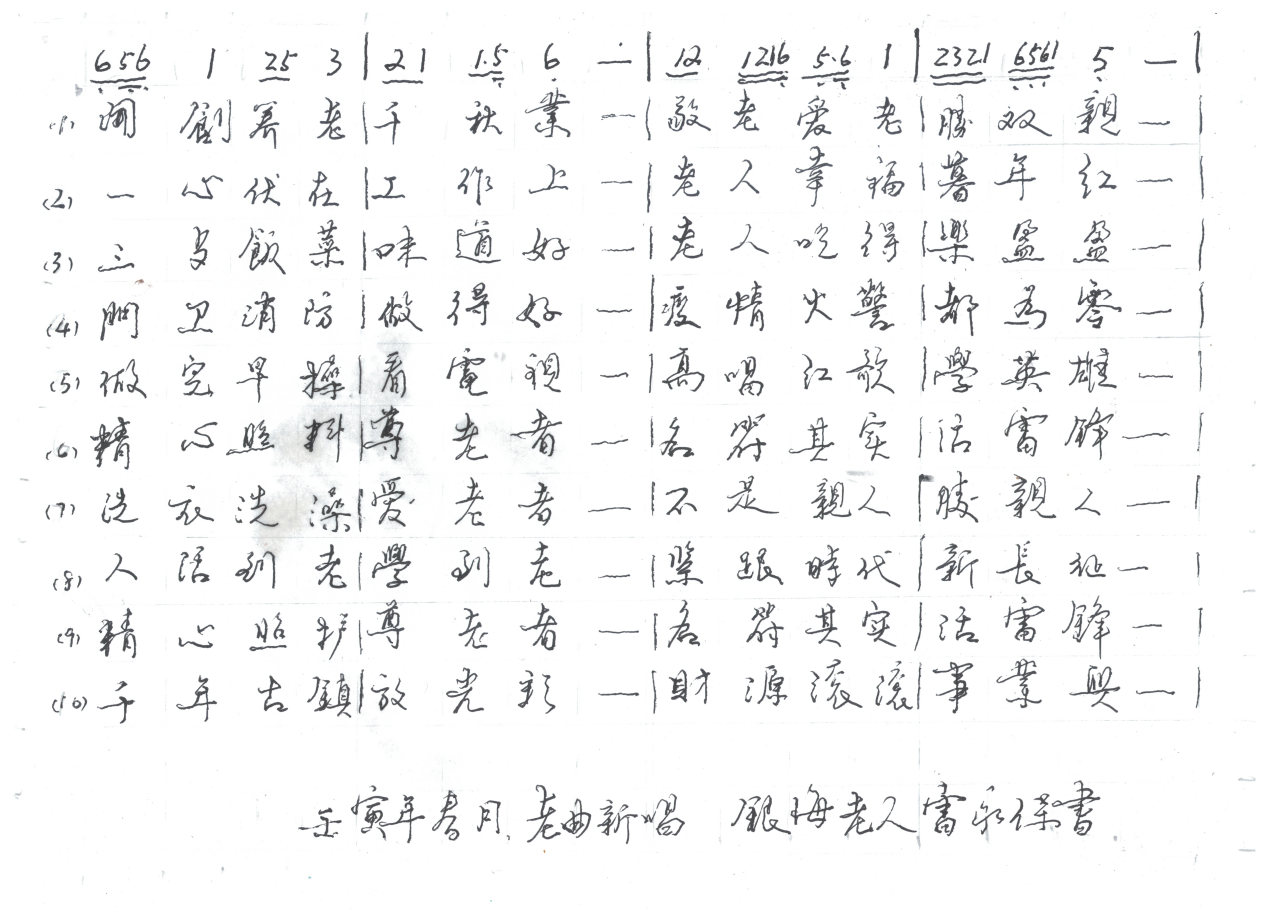 656 1 25 3 | 21 1·5 6 — | 12 1216 5·6 1 | 2321 6561 5 — |
(1) 開創养老 | 千秋業 — | 敬老爱老 | 勝双親 —
(2) 一心伏在 | 工作上 — | 老人幸福 | 暮年红 — |
(3) 三多飯菜 | 味道好 — | 老人吃得 | 樂盈盈 — |
(4) 門卫消防 | 做得好 — | 疫情火警 | 都为零 — |
(5) 做完早操 | 看電視 — | 高唱红歌 | 學英雄 — |
(6) 精心照料 | 尊老者 — | 名符其实 | 活雷锋 — |
(7) 洗衣洗澡 | 愛老者 — | 不是親人 | 勝親人 — |
(8) 人活到老 | 學到老 — | 緊跟時代 | 新長征 — |
(9) 精心照护 | 尊老者 — | 名符其实 | 活雷鋒 — |
(10) 千年古鎮 | 放光彩 — | 財源滚滚 | 事業興 — |
壬寅年春月、老曲新唱 銀海老人雷永保書